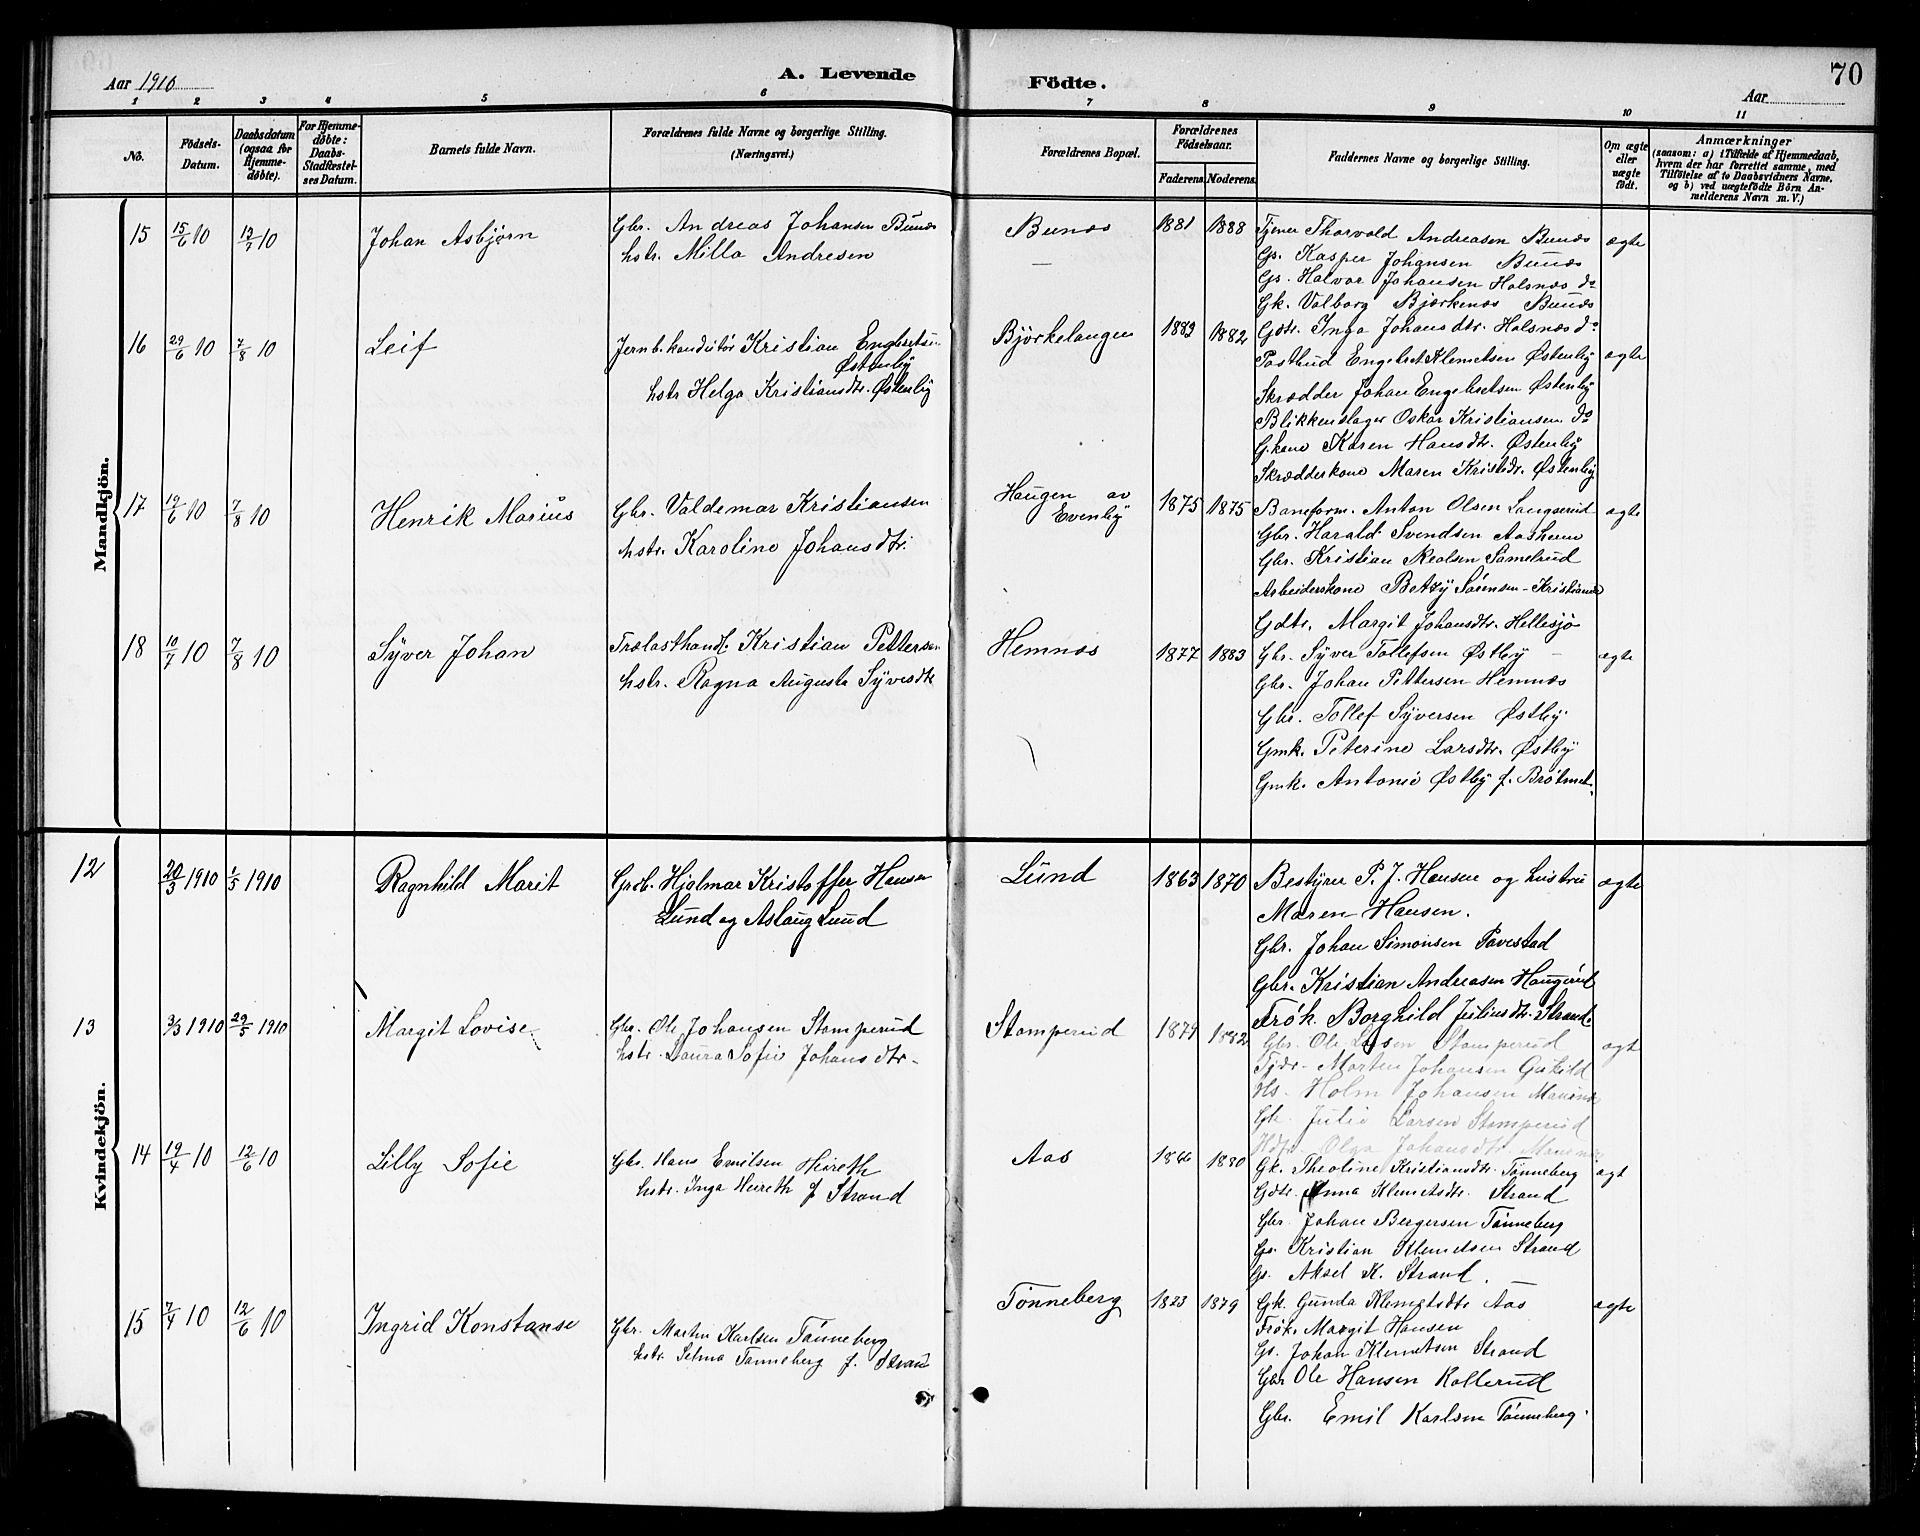 Aar 1910
A. Levende
Födte.
70
Aar
1 2 3 4 5 6 7 8 9 10 11
No.
Födsels-
Datum.
Daabsdatum
(ogsaa for
Hjemme-
døbte).
For Hjemme-
døbte:
Daabs-
Stadfæstel-
ses Datum.
Barnets fulde Navn.
Forældrenes fulde Navne og borgerlige Stilling.
(Næringsvei.)
Forældrenes Bopæl.
Forældrenes
Födselsaar.
Faderens. Moderens.
Faddernes Navne og borgerlige Stilling.
Om ægte
eller
uægte
født.
Anmærkninger
(saasom: a) i Tilfælde af Hjemmedaab,
hvem der har forrettet samme, med
Tilføielse af to Daabsvidners Navne,
og b) ved uægtefödte Börn An-
melderens Navn m. V.)
Mandkjön.
15 15/6 10 /7 10 Johan Asbjørn
Gbr. Andreas Johansen Bunæs
hstr. Milla Andresen
Bunæs 1881 1888
Tjener Thorvald Andreasen Bunæs
Gs. Kasper Johansen Bunæs
Gs. Halvor Johansen Holsnæs do
Gk. Valborg Bjørkenæs Bunæs
Gdtr. Inga Johansdtr. Holsnæs do
ægte
16 29/6 10 7/8 10 Leif
Jernb.konduktør Kristian Engbretsen
Østenby
hstr Helga Kristiansdtr. Østenby
Bjørkelangen 1883 1882
Postbud Engebret Klemetsen Østenby
Skrædder Johan Engebretsen Østenby
Blikkenslager Oskar Kristiansen do
G.kone Karen Hansdtr. Østenby
Skrædderkone Maren Kristsdtr. Østenby
ægte
17 19/6 10 7/8 10 Henrik Marius
Gbr. Valdemar Kristiansen
hstr. Karoline Johansdtr.
Haugen av
Evenby 1875 1875
Baneform. Anton Olsen Langserud
Gbr. Harald Svendsen Aasheim
Gbr. Kristian Samelrud
Arbeiderskone Betzy Sørensen - Kristiania
Gdtr. Margit Johansdtr. Hellesjø
ægte
18 10/7 10 7/8 10 Syver Johan
Trælasthandl. Kristian Pettersen
hstr. Ragna Augusta Syversdtr
Hemnæs 1877 1883
Gbr. Syver Tollefsen Østby
Gbr. Johan Pettersen Hemnæs
Gbr. Tollef Syversen Østby
Gmk. Peterine Larsdtr. Østby
Gmk. Antonie Østby f.
ægte
Kvindekjön.
12 20/3 1910 1/5 1910 Ragnhild Marit
Hjalmar Kristoffer Hansen
Lund og Aslaug Lund
Lund 1863 1870
Bestyrer P. J. Hansen og hustru
Maren Hansen.
Gbr. Johan Simonsen Tavestad
Gbr. Kristian Andreasen Haugerud
Frøk. Borghild Juliusdtr. Strand.
ægte
13 3/3 1910 29/5 1910 Margit Lovise
Gbr. Ole Johansen Stamperud
hstr. Laura Sofie Johansdtr.
Stamperud 1879 1882
Gbr. Ole Larsen Stamperud
Morten Johansen
Holm Johansen
Gk. Julie Larsen Stamperud
Olga Johansdtr.
ægte
14 19/4 10 12/6 10 Lilly Sofie
Gbr. Hans Emilsen Heireth
hstr. Inga Heireth f Strand
Aas 1886 1880
Gk. Theoline Kristiansdtr. Tønneberg
Gdtr. Anna Klemetsdtr. Strand
Gbr. Johan Bergersen Tønneberg
Gs. Kristian Klemetsen Strand
Gs. Aksel K. Strand.
ægt
15 7/4 10 12/6 10 Ingrid Konstanse
Gbr. Martin Karlsen Tønneberg
hstr. Selma Tønneberg f. Strand
Tønneberg 1879
Gk. Gunda Klemetsdtr Aas
Frøk. Margit Hansen
Gs. Johan Klemetsen Strand
Gbr Ole Hansen Kollerud
Gbr. Emil Karlsen Tønneberg.
ægte